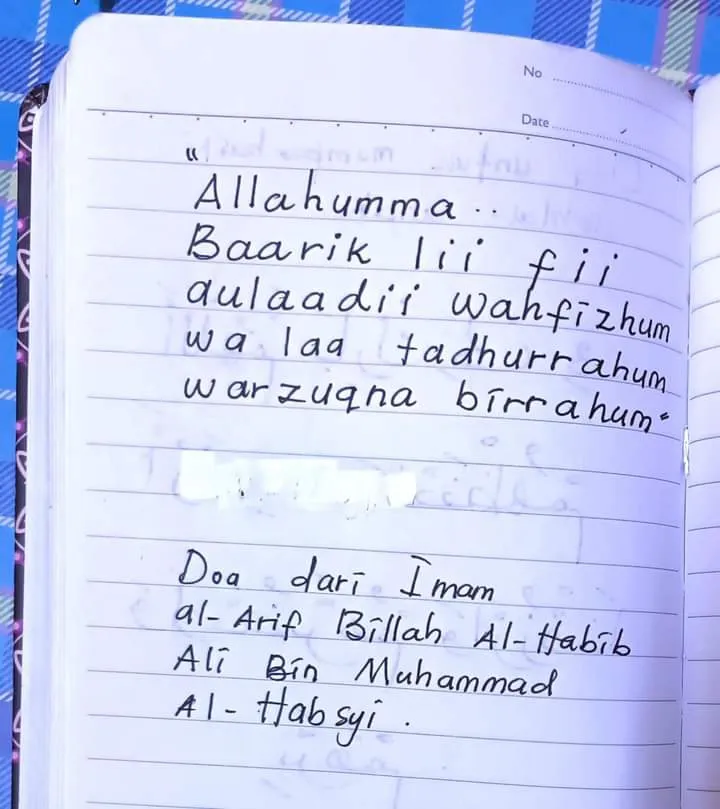 No
Date
"
Allahumma ..
Baarik lii fii
aulaadii wahfizhum
wa laa tadhurrahum
warzuqna birrahum"
Doa dari Imam
al-Arif Billah Al-Habib
Ali Bin Muhammad
Al-Habsyi.